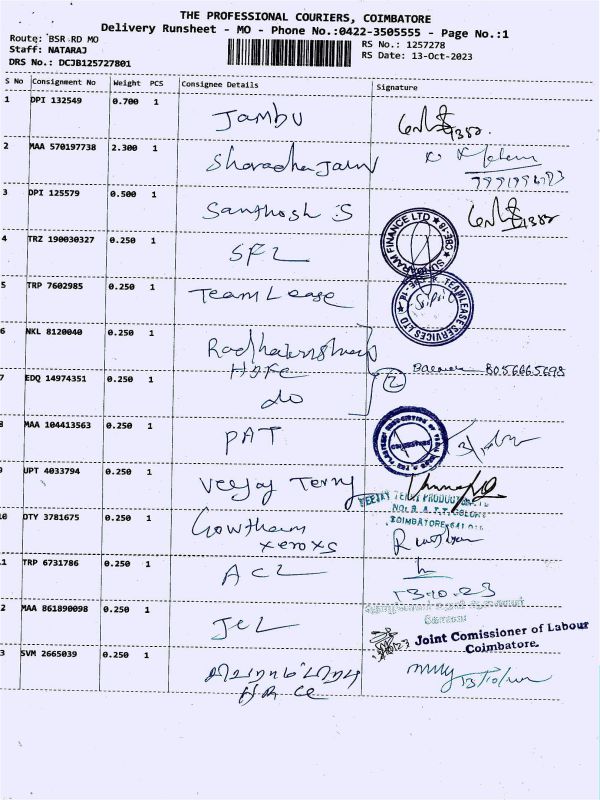 THE PROFESSIONAL COURIERS, COIMBATORE
Delivery Runsheet - MO - Phone No.:0422-3505555 - Page No.:1
Route: BSR RD MO
Staff: NATARAJ
DRS No.: DCJB125727801
RS No.: 1257278
RS Date: 13-Oct-2023
S No Consignment No Weight PCS Consignee Details Signature
1 DPI 132549 0.700 1 Jambu
2 MAA 570197738 2.300 1 Sharadha Jain
3 DPI 125579 0.500 1 Santhosh S
4 TRZ 190030327 0.250 1 SFL
5 TRP 7602985 0.250 1 TeamLease
TEAMLEASE SERVICES LTD
6 NKL 8120040 0.250 1 Radhakrishnan
HDFC
8056665698
7 EDQ 14974351 0.250 1 do
2
8 MAA 104413563 0.250 1 PAT
9 UPT 4033794 0.250 1 Veejay Terry
VEEJAY TERRY
COIMBATORE-641
10 DTY 3781675 0.250 1 Gowtham
xeroxs
11 TRP 6731786 0.250 1 ACL
13.10.23
12 MAA 861890098 0.250 1 JCL
Joint Comissioner of Labour
Coimbatore.
13 SVM 2665039 0.250 1
HR CE